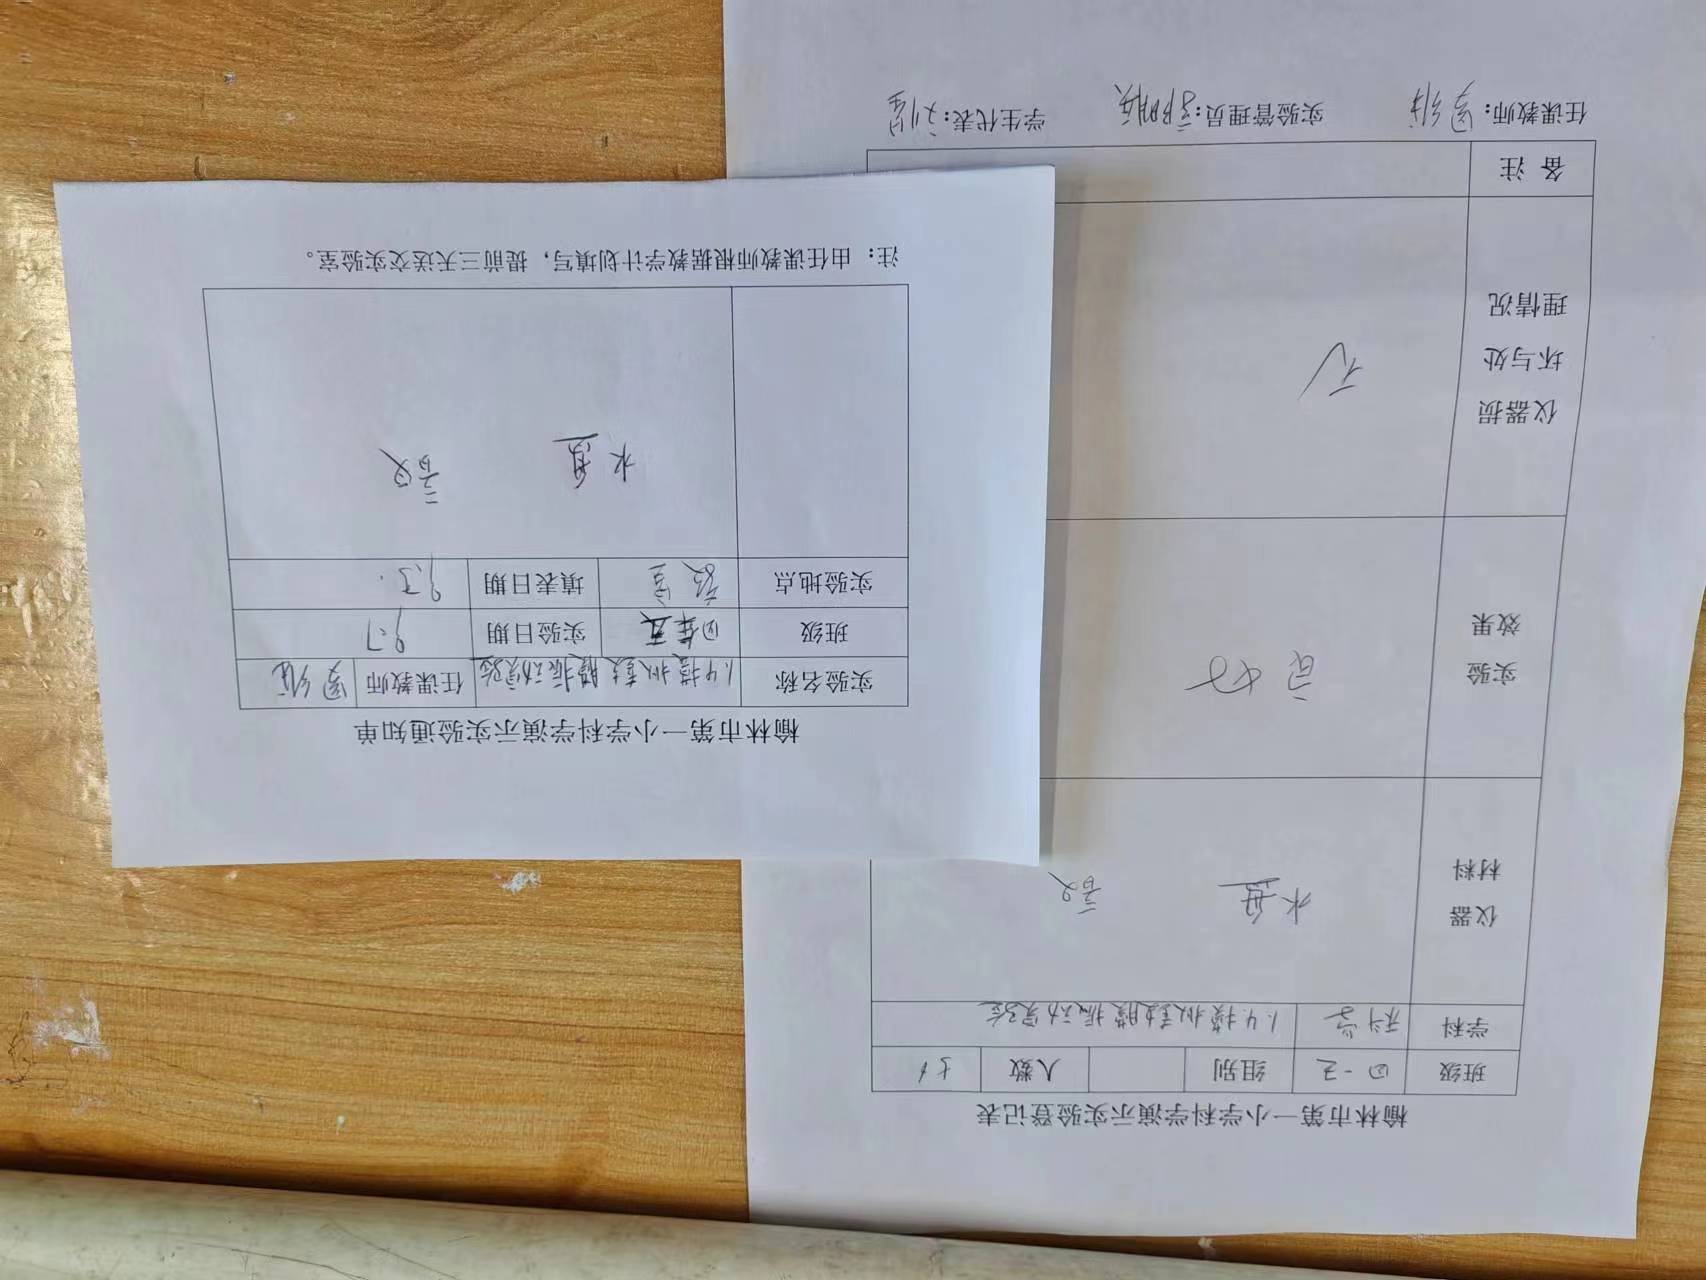 榆林市第一小学科学演示实验通知单
实验名称 1.4模拟鼓膜振动实验 任课教师
班级 四年五 实验日期 9.7
实验地点 教室 填表日期 9.3.
水盆
注：由任课教师根据教学计划填写，提前三天送交实验室。
榆林市第一小学科学演示实验登记表
班级 组别 人数
学科 科学 1.4.模拟鼓膜振动实验
仪器材料 水盆
实验效果 良好
仪器损坏与处理情况 无
备注
任课教师： 实验管理员： 学生代表：